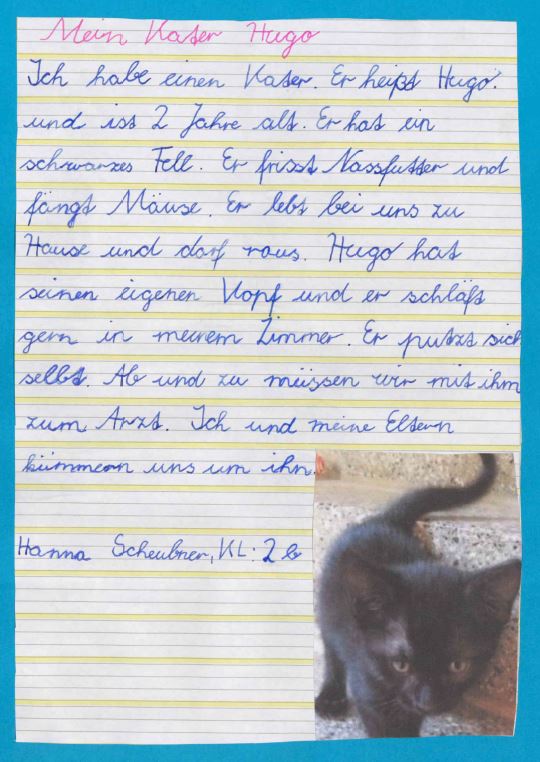 Mein Kater Hugo
Ich habe einen Kater. Er heißt Hugo.
und ist 2 Jahre alt. Er hat ein
schwarzes Fell. Er frisst Nassfutter und
fängt Mäuse. Er lebt bei uns zu
Hause und darf raus. Hugo hat
seinen eigenen Kopf und er schläft
gern in meinem Zimmer. Er putzt sich
selbst. Ab und zu müssen wir mit ihm
zum Arzt. Ich und meine Eltern
kümmern uns um ihn.
Hanna Scheubner, KL: 2 b